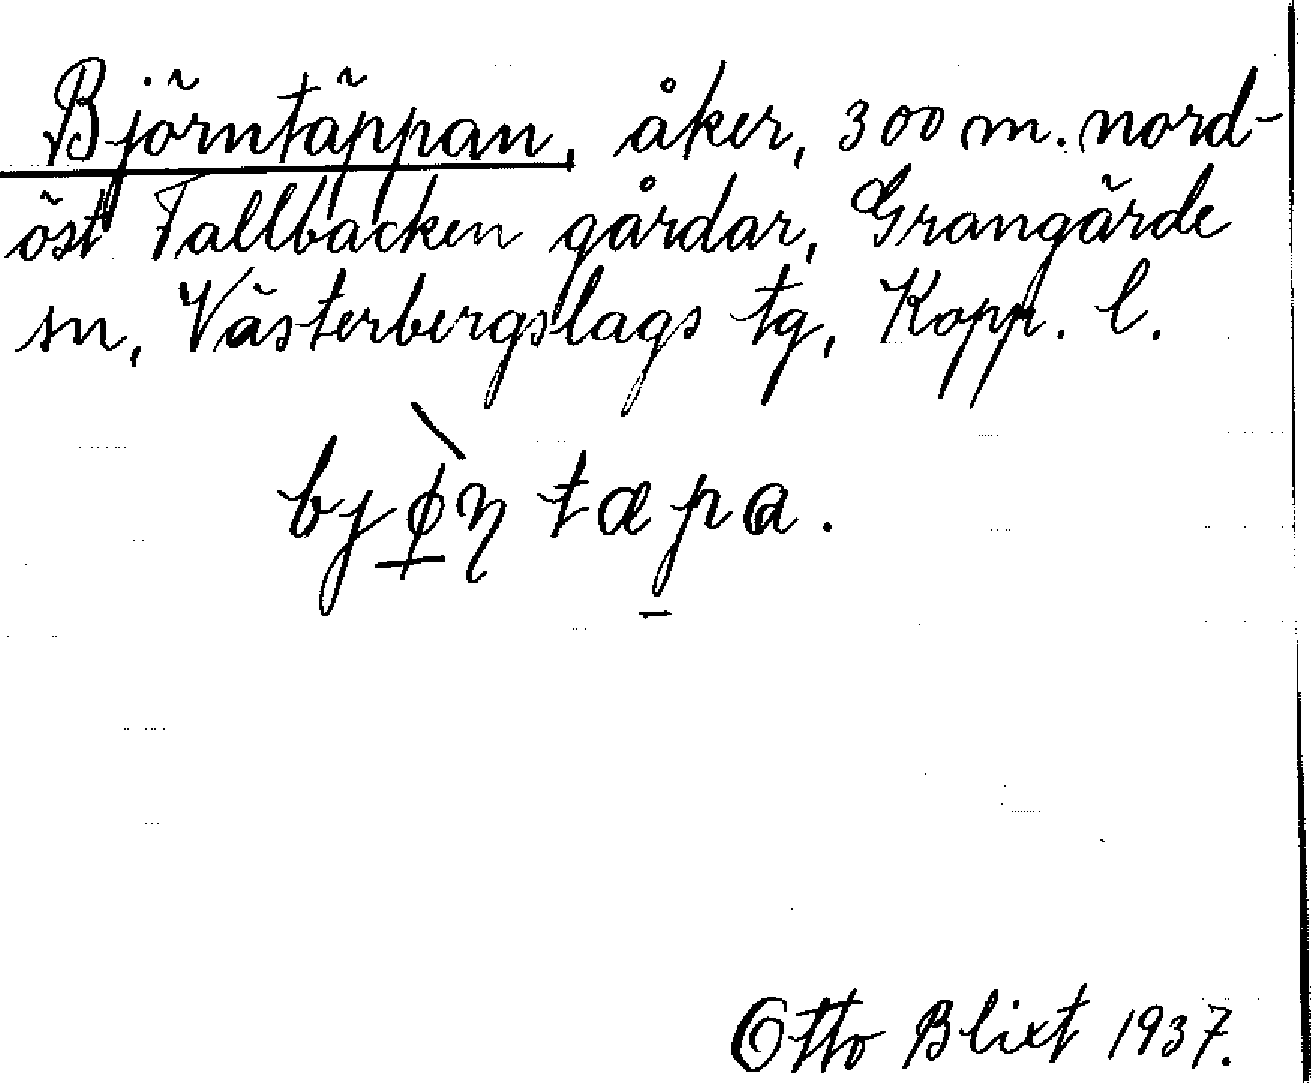 Björntäppan, åker, 300 m. nord-
öst Tallbacken gårdar, Grangärde
sn, Västerbergslags tg, Kopp. l.
bjø̱̀ɳ tæpa.
Otto Blixt 1937.